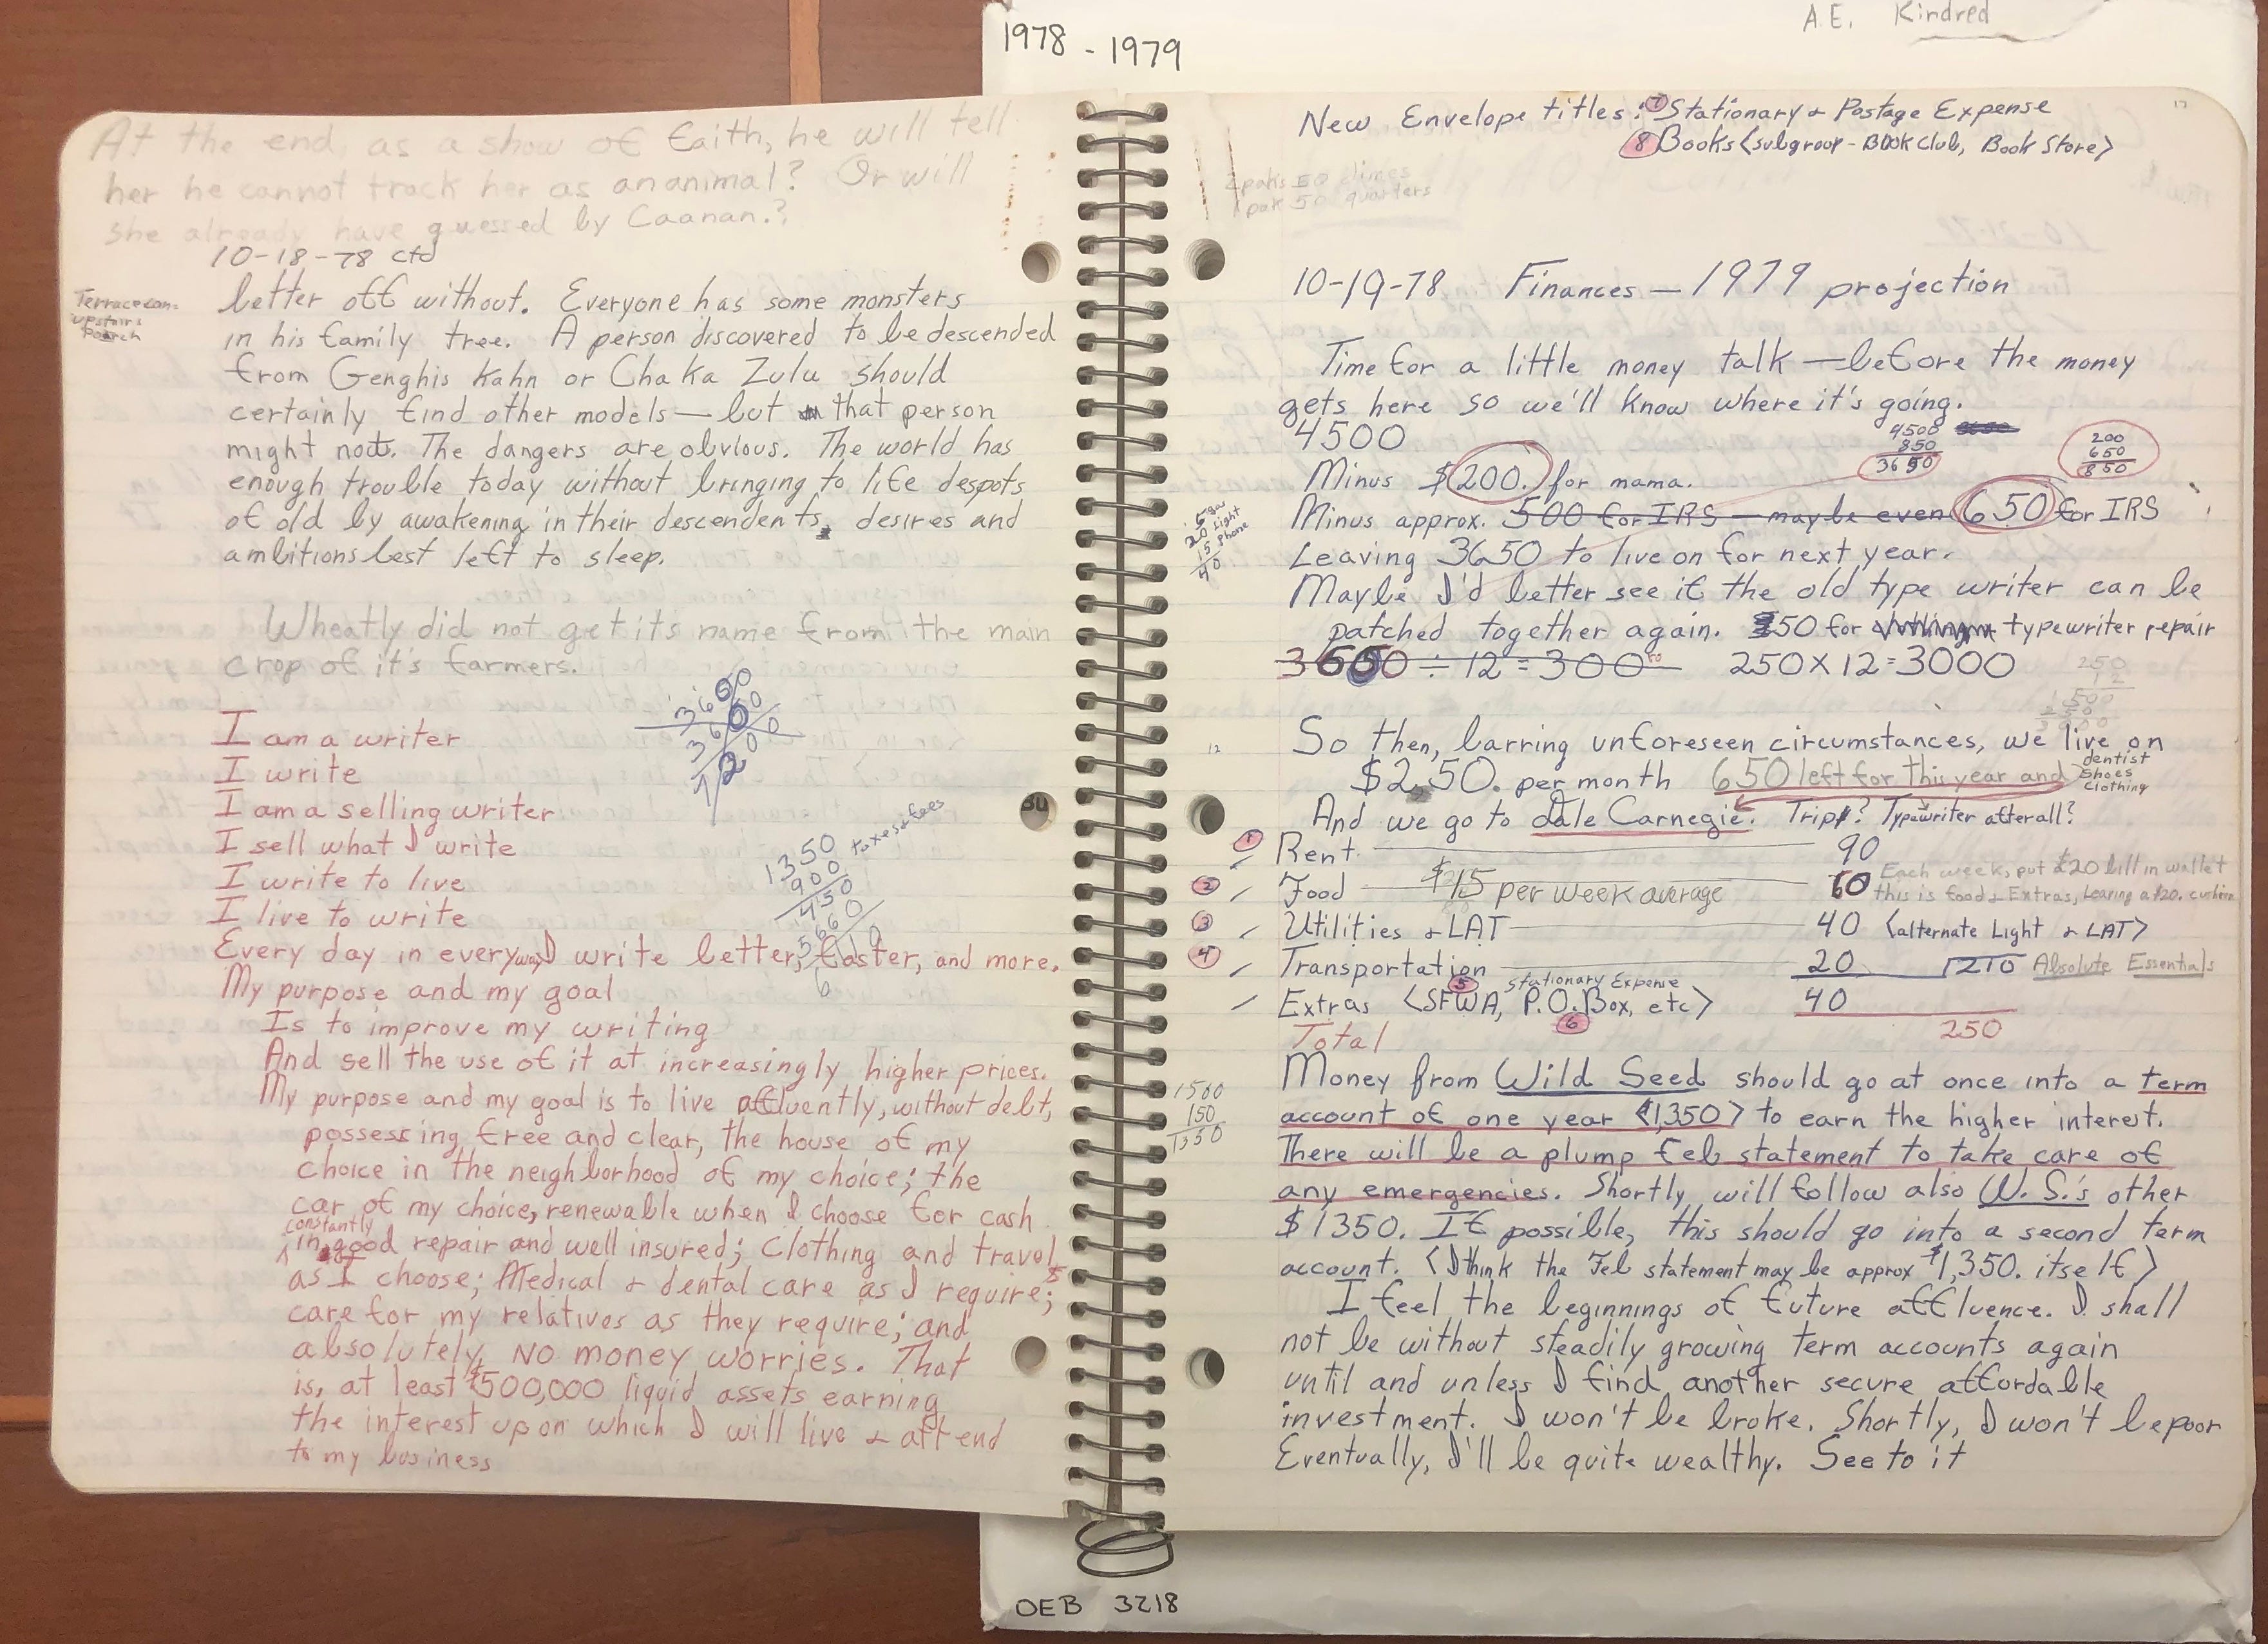 1978 - 1979
A.E. Kindred
At the end, as a show of faith, he will tell
her he cannot track her as an animal? Or will
she already have guessed by Caanan.?
10-18-78 ctd
Terrace
upstairs
Porch
better off without. Everyone has some monsters
in his family tree. A person discovered to be descended
from Genghis Kahn or Chaka Zulu should
certainly find other models — but that person
might not. The dangers are obvious. The world has
enough trouble today without bringing to life despots
of old by awakening in their descendents, desires and
ambitions best left to sleep.
Wheatly did not get its name from the main
crop of it's farmers.
3600
3600
7200
I am a writer
I write
I am a selling writer
I sell what I write
I write to live
I live to write
1350 taxes & fees
900
450
Every day in every way I write better, faster, and more.
My purpose and my goal
Is to improve my writing
And sell the use of it at increasingly higher prices.
My purpose and my goal is to live affluently, without debt,
possessing free and clear, the house of my
choice in the neighborhood of my choice; the
car of my choice, renewable when I choose for cash
constantly
in good repair and well insured; Clothing and travel
as I choose; Medical & dental care as I require;
care for my relatives as they require; and
absolutely, NO money worries. That
is, at least $500,000 liquid assets earning
the interest upon which I will live & attend
to my business
New Envelope titles: 7 Stationary & Postage Expense
8 Books <subgroup - Book Club, Book Store>
2 paks 50 dimes
1 pak 50 quarters
10-19-78 Finances — 1979 projection
Time for a little money talk — before the money
gets here so we'll know where it's going.
4500
4500
850
3650
200
650
850
Minus $200. for mama.
Minus approx. 500 for IRS — maybe even 650 for IRS
5 gas
20 Light
15 Phone
40
Leaving 3650 to live on for next year.
Maybe I'd better see if the old type writer can be
patched together again. $50 for typewriter repair
3600 ÷ 12 = 300 250 X 12 = 3000
250
12
500
250
3000
So then, barring unforeseen circumstances, we live on
12
$250. per month 650 left for this year and
dentist
Shoes
Clothing
And we go to Dale Carnegie. Trip? Typewriter after all?
1 Rent 90
2 Food $15 per week average 60
Each week, put $20 bill in wallet
this is food & Extras, Leaving a $20. cushion
3 Utilities & LAT 40 <alternate Light & LAT>
4 Transportation 20 210 Absolute Essentials
5 Stationary Expense
Extras <SFWA, P.O. Box, etc> 40
6
Total 250
Money from Wild Seed should go at once into a term
1500
150
1350
account of one year <1,350> to earn the higher interest.
There will be a plump Feb statement to take care of
any emergencies. Shortly will follow also W.S.'s other
$1350. If possible, this should go into a second term
account. <I think the Feb statement may be approx $1,350. itself>
I feel the beginnings of future affluence. I shall
not be without steadily growing term accounts again
until and unless I find another secure affordable
investment. I won't be broke. Shortly, I won't be poor
Eventually, I'll be quite wealthy. See to it
OEB 3218